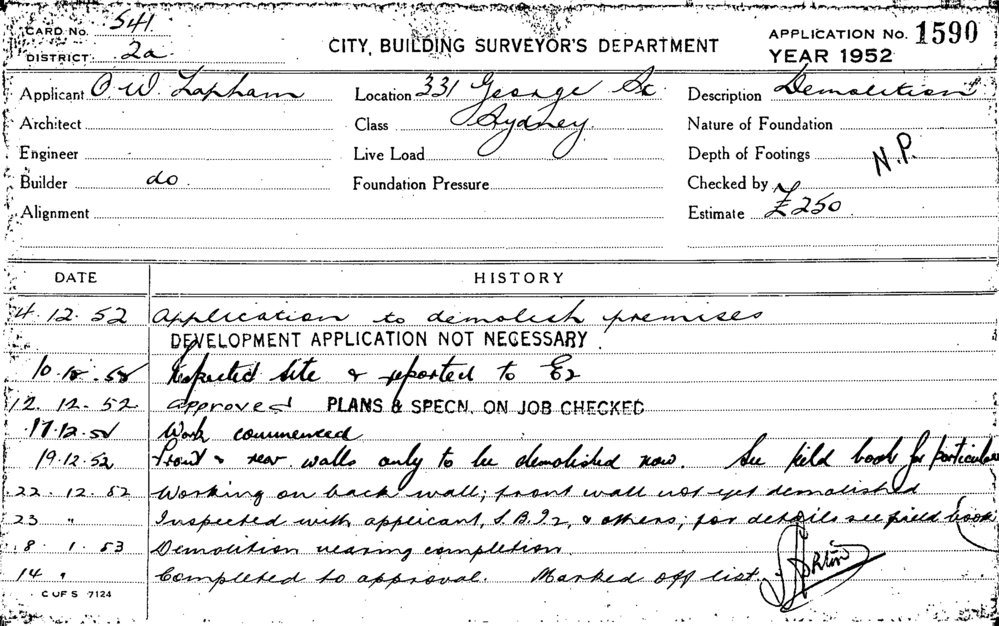 CARD No. 541.
DISTRICT 2a
CITY, BUILDING SURVEYOR'S DEPARTMENT
APPLICATION No. 1590
YEAR 1952
Applicant O. W. Lapham Location 331 George St. Description Demolition
Architect Class Sydney. Nature of Foundation
Engineer Live Load Depth of Footings N.P.
Builder do Foundation Pressure Checked by
Alignment Estimate £250
DATE HISTORY
4.12.52 Application to demolish premises
DEVELOPMENT APPLICATION NOT NECESSARY.
10.12.52 Inspected site & reported to
12.12.52 approved PLANS & SPECN. ON JOB CHECKED
17.12.52 Work commenced
19.12.52 Front & rear walls only to be demolished now. See field book for particulars
22.12.52 Working on back wall; front wall not yet demolished
23 " Inspected with applicant, S.B.I2, & others; for details see field book
8.1.53 Demolition nearing completion.
14 " Completed to approval. Marked off list.
C OF S 7124